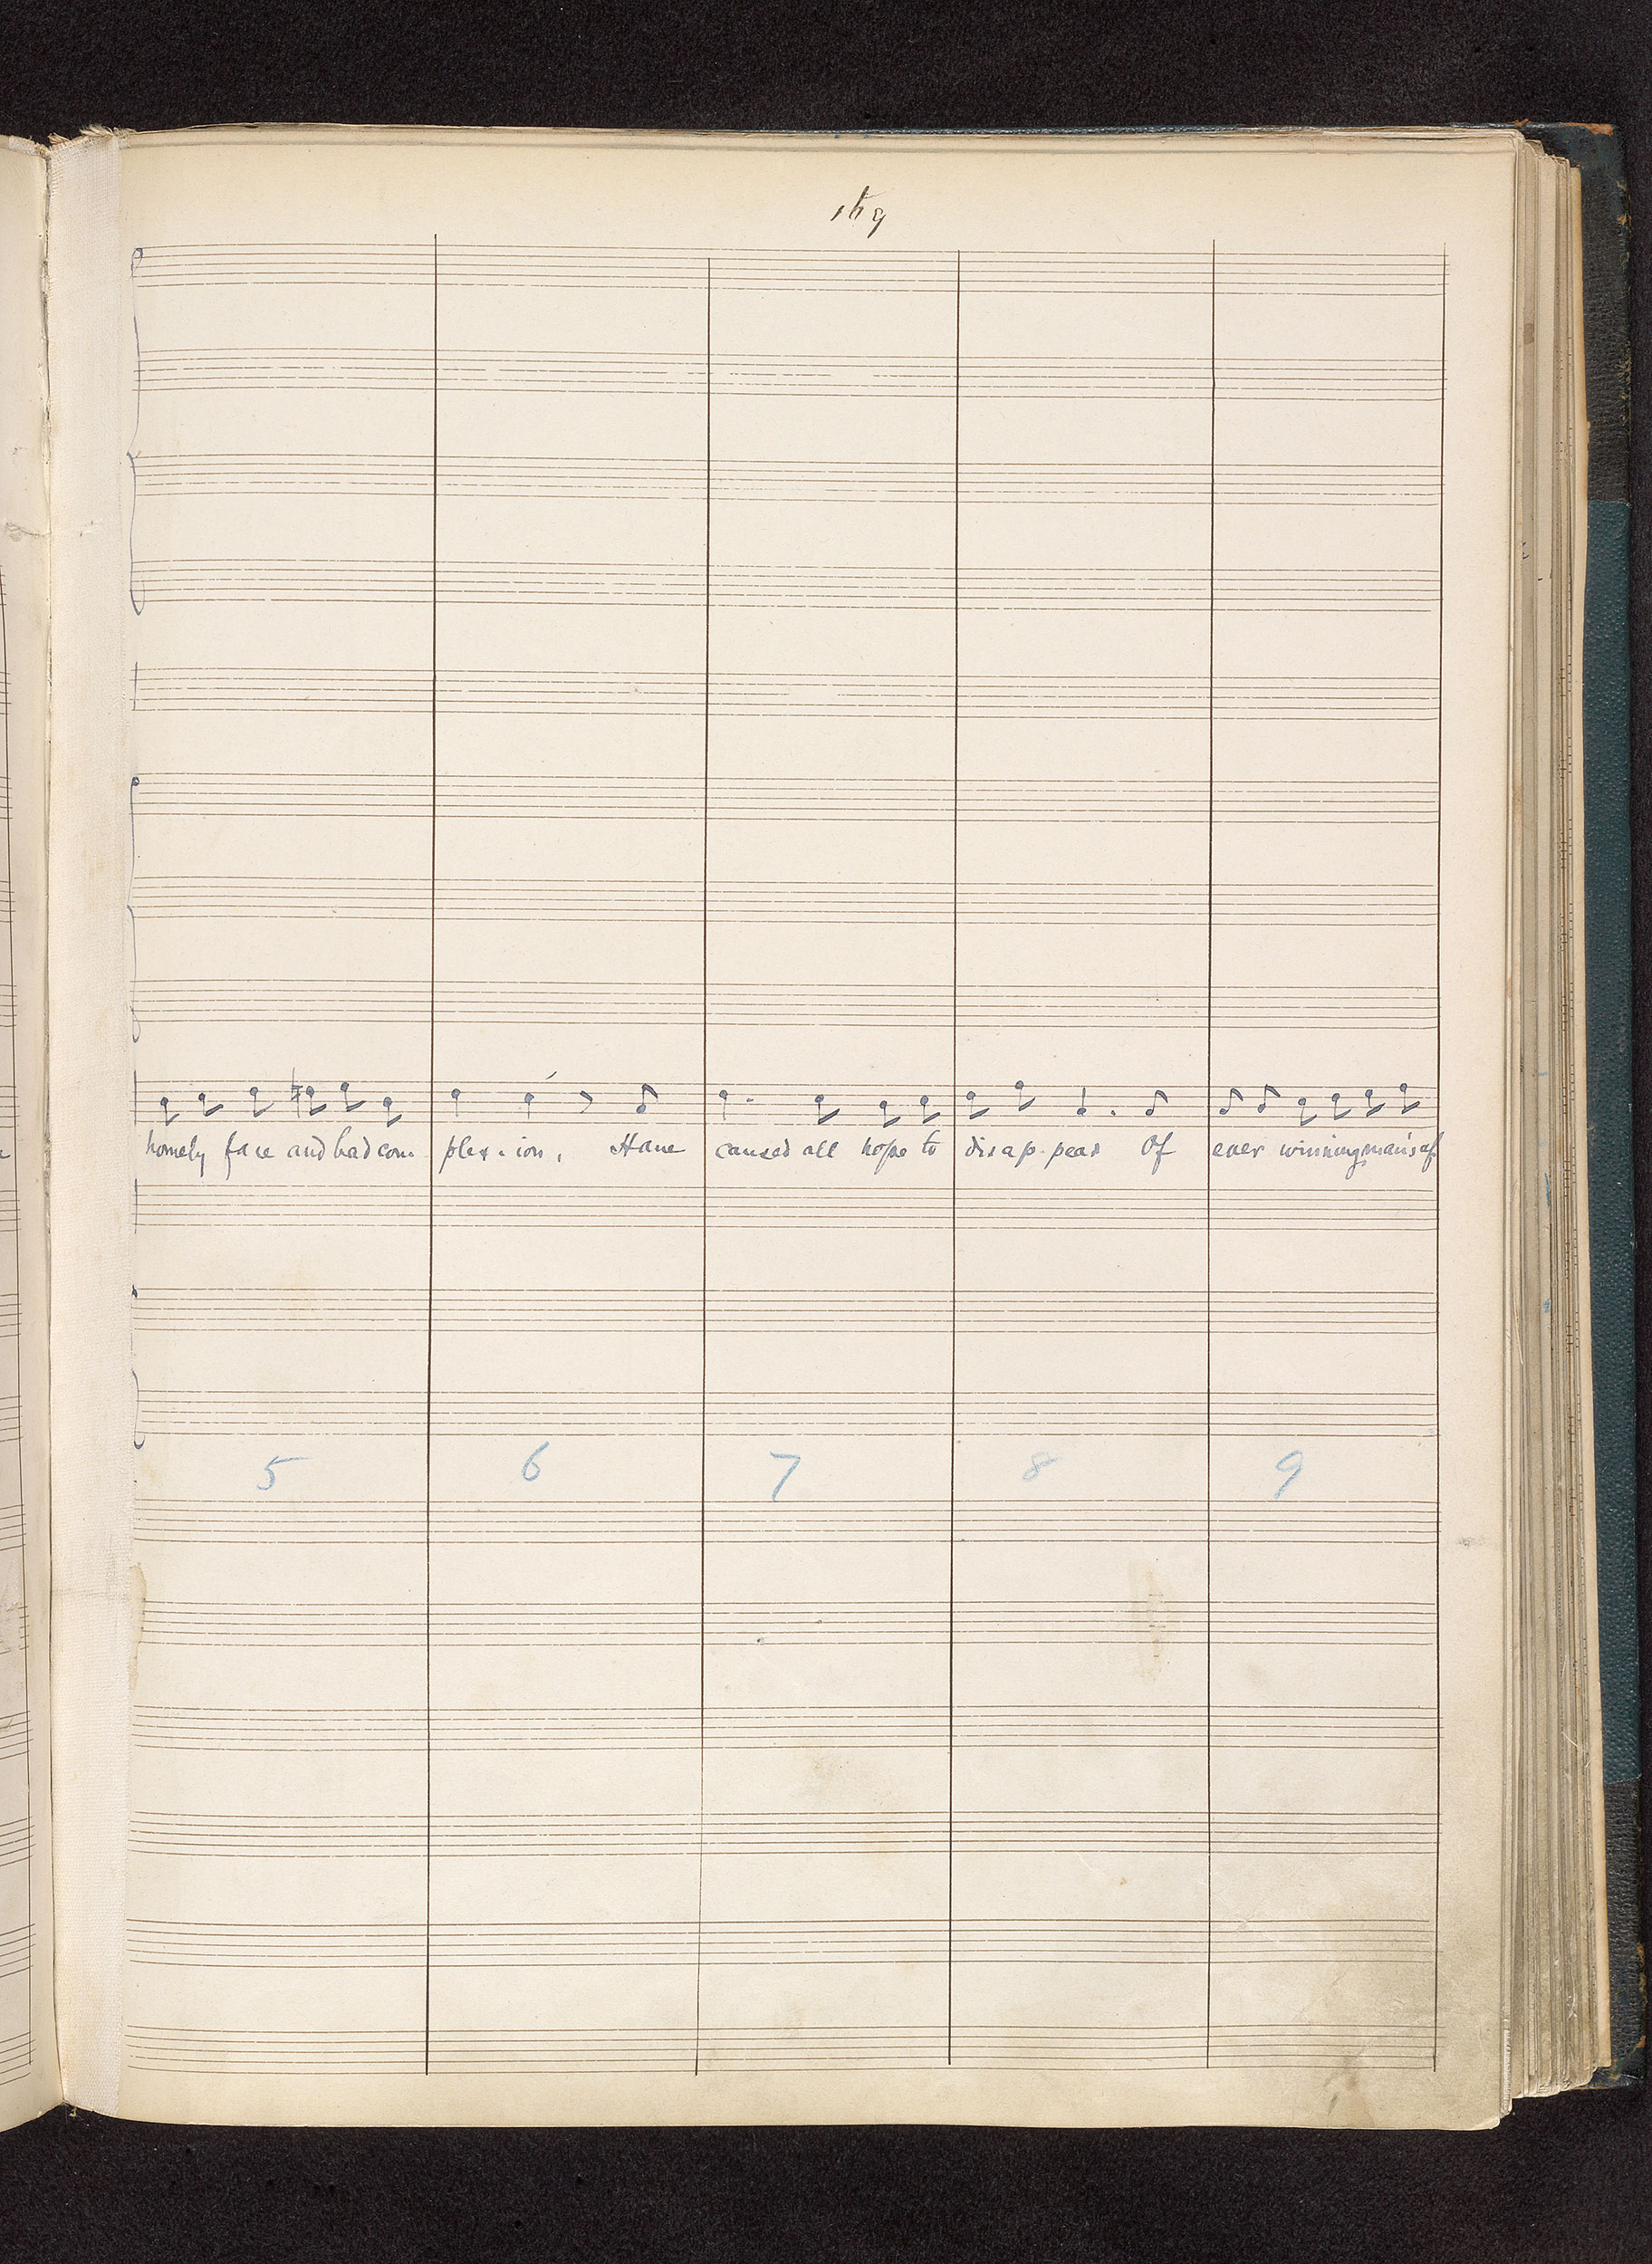 169
homely face and bad com plex - ion, Have caused all hope to disap-pear Of ever winning man's af
5 6 7 8 9